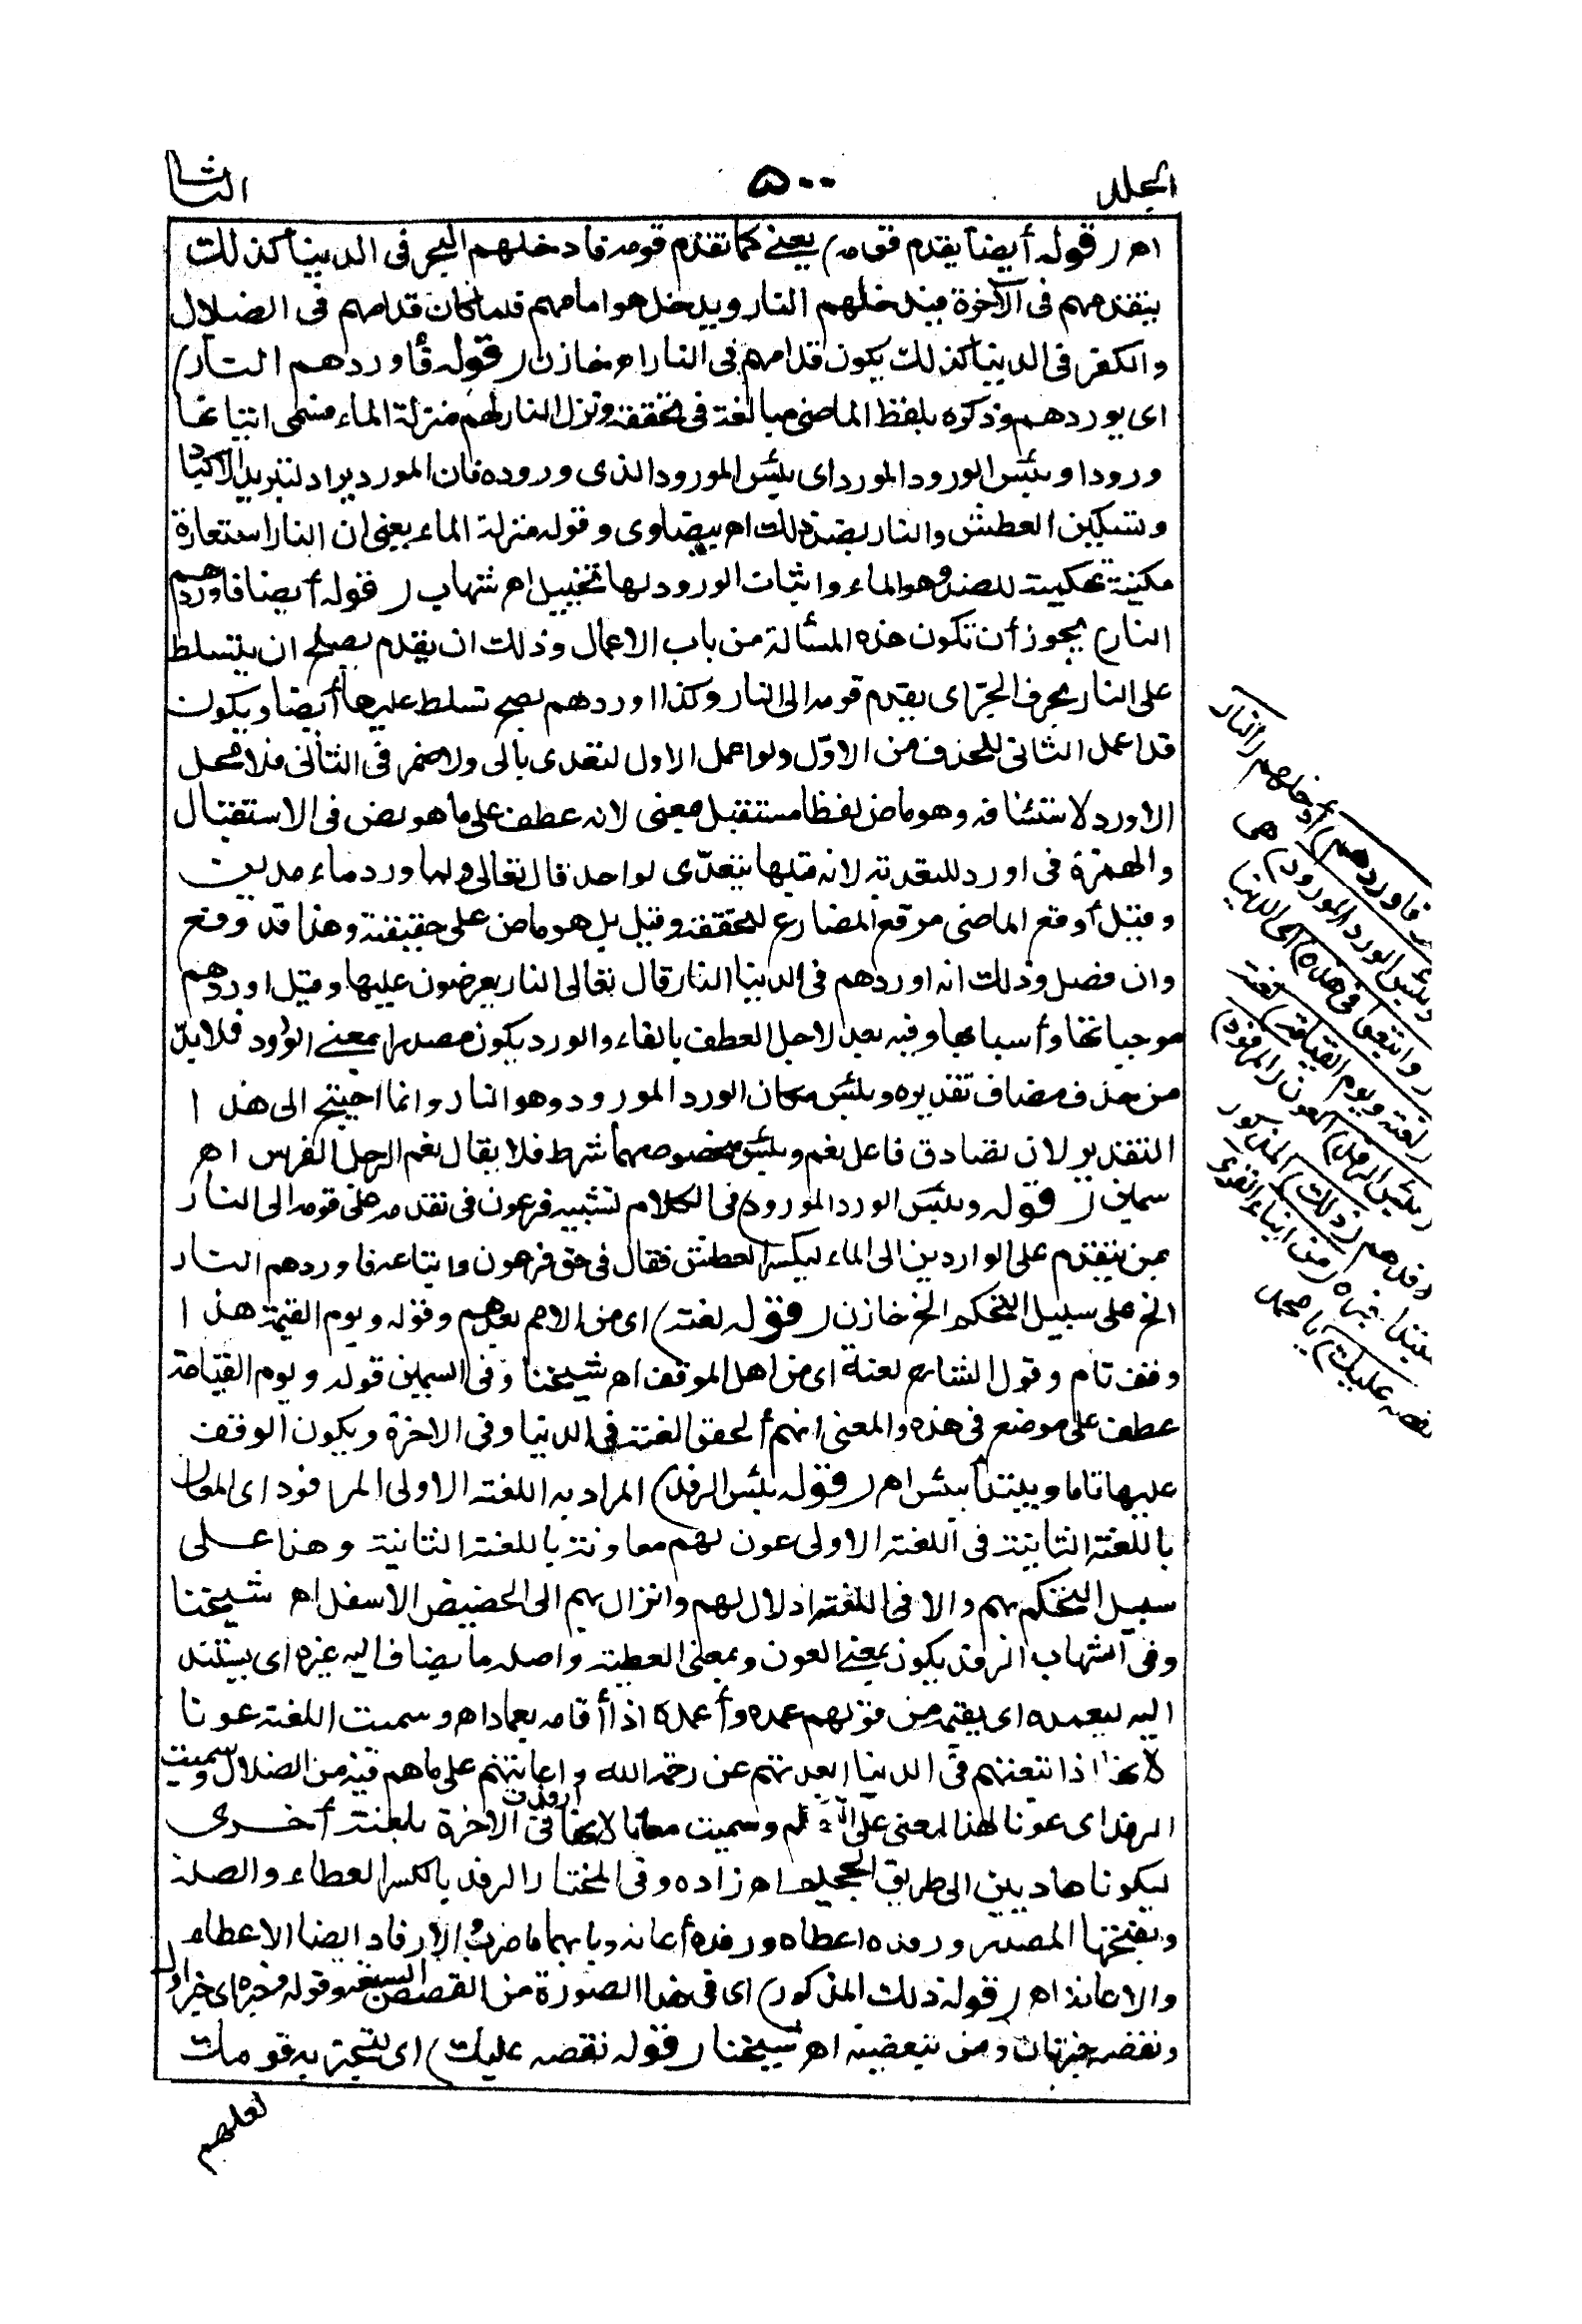 الجلد ٥٠٠ الثا
اهـ (قوله أيضا يقدم قومه) يعنى كما تقدم قومه فادخلهم البحر فى الدنيا كذلك
يتقدمهم فى الآخرة فيدخلهم النار ويدخل هو امامهم فلما كان قدامهم فى الضلال
والكفر فى الدنيا كذلك يكون قدامهم فى النار اهـ خازن (قوله فأوردهم النار)
اى يوردهم وذكره بلفظ الماضى مبالغة فى تحققه ونزل النار لهم منزلة الماء فسمى اتيانها
ورودا وبئس الورد المورود اى بئس المورود الذى وروده فان المورد يراد لتبريد الاكباد
وتسكين العطش والنار بضد ذلك اهـ بيضاوى وقوله منزلة الماء يعنى ان النار استعارة
مكنية تهكمية للضد وهو الماء واثبات الورود لها تخييل اهـ شهاب (قوله أيضا فاوردهم
النار) يجوز أن تكون هذه المسألة من باب الاعمال وذلك ان يقدم يصلح ان يتسلط
على النار بحرف الجر اى يقدم قومه الى النار وكذا اوردهم يصح تسلط عليها أيضا ويكون
قد اعمل الثانى للحذف من الاول ولو اعمل الاول لتعدى بالى ولاضمر فى الثانى فلا محل
لاورد لاستئنافه وهو ماض لفظا مستقبل معنى لانه عطف على ما هو نص فى الاستقبال
والهمزة فى اورد للتعدية لانه قبلها يتعدى لواحد قال تعالى ولما ورد ماء مدين
وقيل أوقع الماضى موقع المضارع لتحققه وقيل بل هو ماض على حقيقته وهذا قد وقع
وان فصل وذلك انه اوردهم فى الدنيا النار قال تعالى النار يعرضون عليها وقيل اوردهم
موجباتها وأسبابها وفيه بعد لاجل العطف بالفاء والورد يكون مصدرا بمعنى الورود فلا بد
من حذف مضاف تقديره وبئس مكان الورد المورود وهو النار وانما احتيج الى هذا
التقدير لان تصادق فاعل نعم وبئس ومخصوصهما شرط فلا يقال نعم الرجل الفرس اهـ
سمين (قوله وبئس الورد المورود) فى الكلام تشبيه فرعون فى تقدمه على قومه الى النار
بمن يتقدم على الواردين الى الماء ليكسر العطش فقال فى حق فرعون واتباعه فاوردهم النار
الخ على سبيل التهكم الخ خازن (قوله لعنة) اى من الامم بعدهم وقوله ويوم القيمة هذا
وقف تام وقول الشارح لعنة اى من اهل الموقف اهـ شيخنا وفى السمين قوله ويوم القيامة
عطف على موضع فى هذه والمعنى انهم ألحقوا لعنة فى الدنيا وفى الاخرة ويكون الوقف
عليها تاما ويبتدأ ببئس اهـ (قوله بئس الرفد) المراد به اللعنة الاولى المرفود اى المعان
باللعنة الثانية فى اللعنة الاولى عون لهم معاونة باللعنة الثانية وهذا على
سبيل التهكم بهم والا فى اللعنة اذلال لهم وانزال بهم الى الحضيض الاسفل اهـ شيخنا
وفى الشهاب الرفد يكون بمعنى العون وبمعنى العطية واصله ما يضاف اليه غيره اى يستند
اليه ليعمده اى يقيمه من قولهم عمده وأعمده اذا أقامه بعماد اهـ وسميت اللعنة عونا
لانها اذا تتبعتهم فى الدنيا ابعدتهم عن رحمة الله واعانتهم على ما هم فيه من الضلال وسميت
الرفد اى عونا لهذا المعنى على وسميت معانا لانها ارفدت فى الاخرة بلعنة أخرى
ليكونا هاديين الى طريق الجحيم اهـ زاده وفى المختار الرفد بالكسر العطاء والصلة
وبفتحها المصدر ورفده اعطاه ورفده أعانه وبابهما ضرب والارفاد ايضا الاعطاء
والاعانة اهـ (قوله ذلك المذكور) اى فى هذه الصورة من القصص السبعة وقوله خبره اى خبر اول
ونقصه خبر ثان ومن تبعيضية اهـ شيخنا (قوله نقصه عليك) اى لتخبر به قومك
لعلهم
فاوردهم) أدخلهم (النار
وبئس الورد المورود) هى
(واتبعوا فى هذه) اى الدنيا
(لعنة ويوم القيامة) لعنة
(بئس الرفد) العون (المرفود)
رفدهم (ذلك) المذكور
مبتدأ خبره (من انباء القرى
نقصه عليك) يا محمد